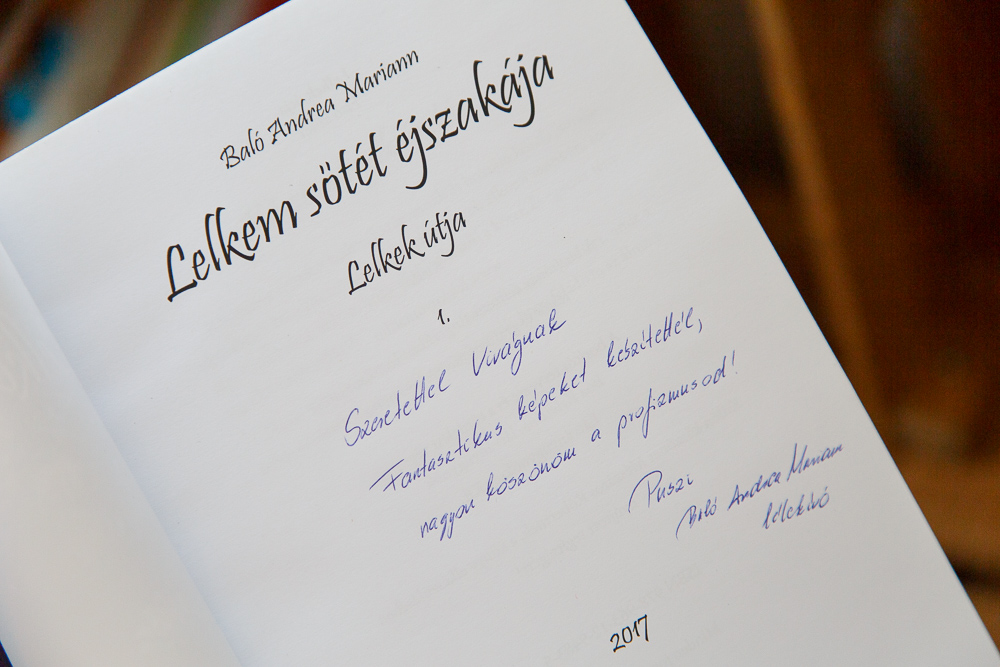 Baló Andrea Mariann
Lelkem sötét éjszakája
Lelkek útja
1.
Szeretettel Virágnak
Fantasztikus képeket készítettél,
nagyon köszönöm a profizmusod!
Puszi
Baló Andrea Mariann
lélekívó
2017